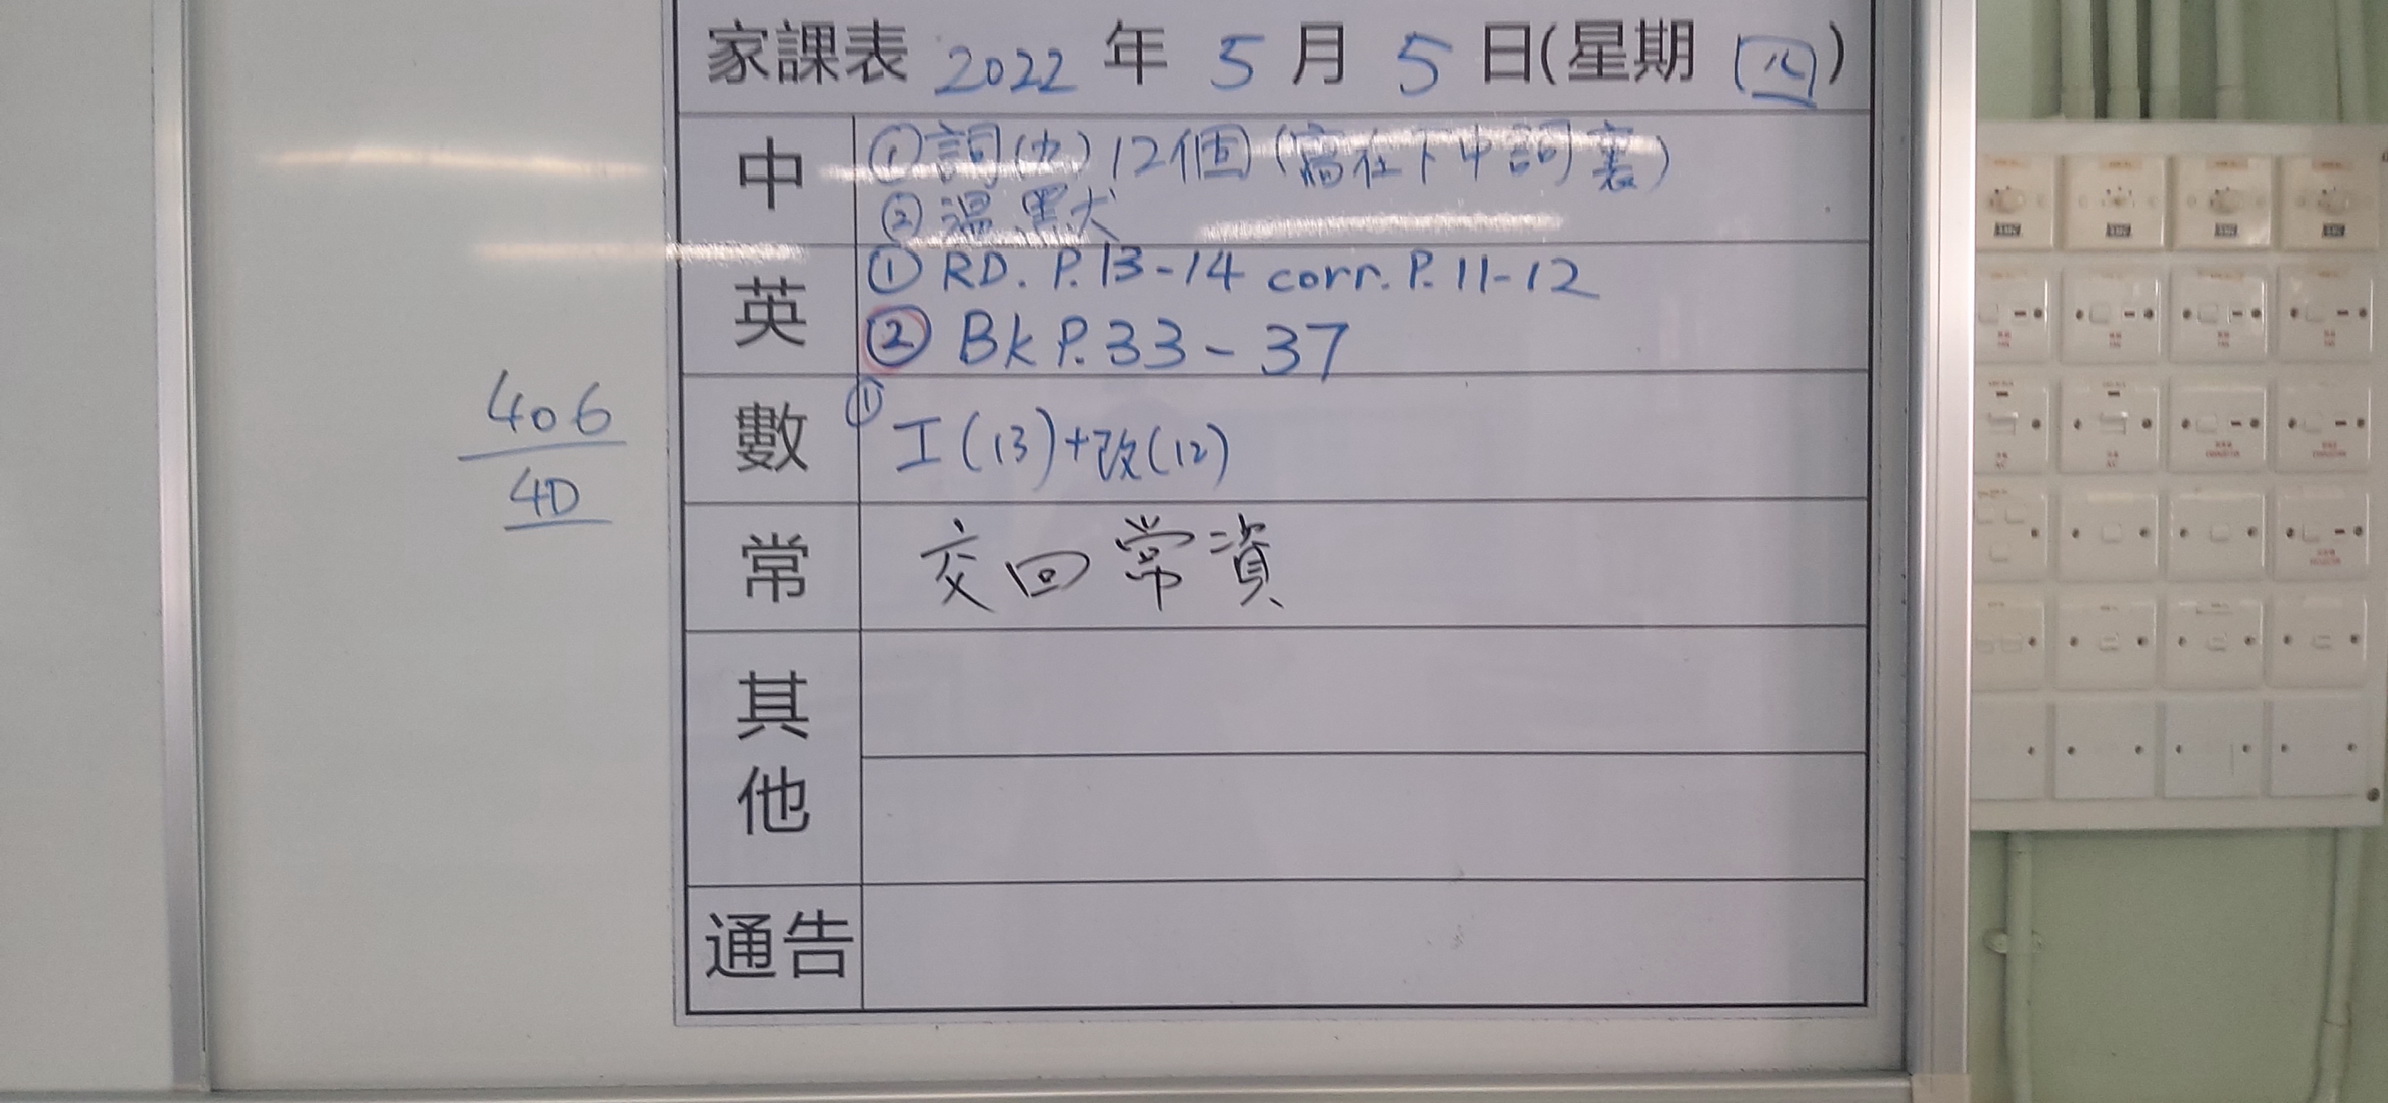 家課表 2022 年 5 月 5 日(星期 四)
中
① 詞(九) 12個 (寫在下中詞表)
② 溫 黙
英
① RD. P.13-14 corr. P.11-12
② Bk P.33-37
數
① 工(13)+改(12)
406
4D
常
交回常資
其他
通告